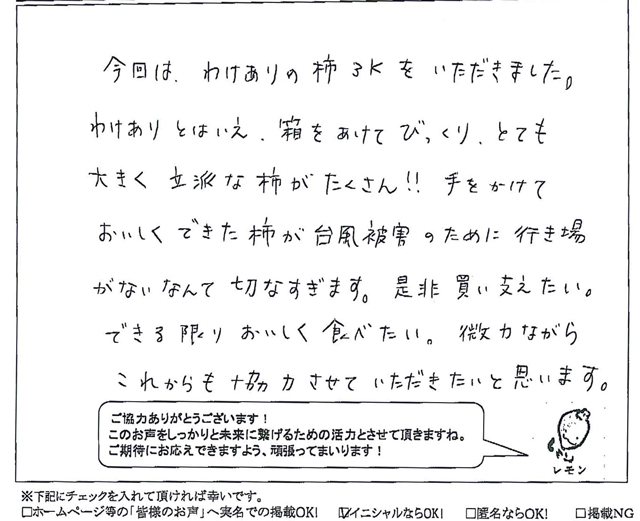 今回は、わけありの柿3Kをいただきました。
わけありとはいえ、箱をあけてびっくり、とても
大きく立派な柿がたくさん!! 手をかけて
おいしくできた柿が台風被害のために行き場
がないなんて切なすぎます。是非買い支えたい。
できる限りおいしく食べたい。微力ながら
これからも協力させていただきたいと思います。
ご協力ありがとうございます!
このお声をしっかりと未来に繋げるための活力とさせて頂きますね。
ご期待にお応えできますよう、頑張ってまいります!
レモン
※下記にチェックを入れて頂ければ幸いです。
□ホームページ等の「皆様のお声」へ実名での掲載OK! ☑イニシャルならOK! □匿名ならOK! □掲載NG